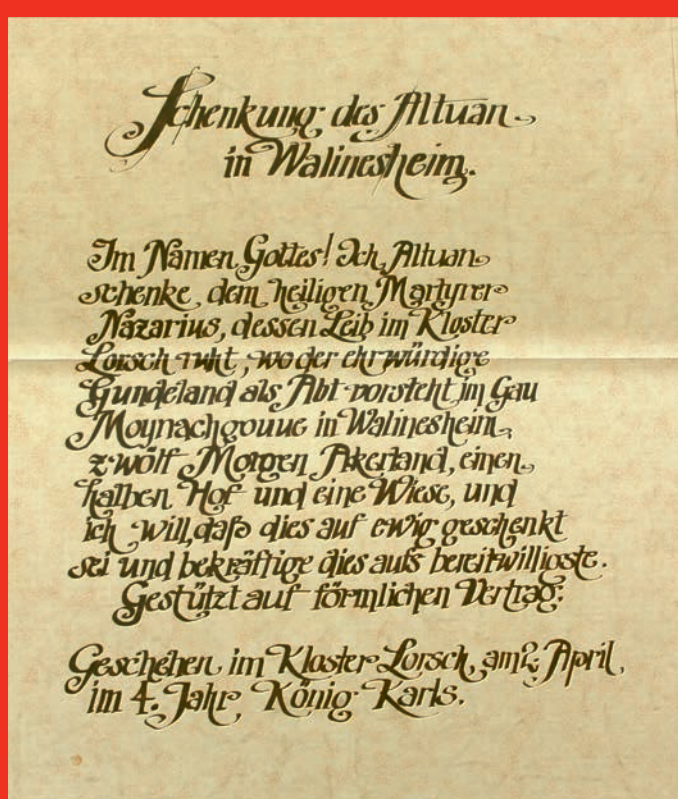 Schenkung des Altuan
in Walinesheim.
Im Namen Gottes! Ich Altuan
schenke dem heiligen Martyrer
Nazarius, dessen Leib im Kloster
Lorsch ruht, wo der ehrwürdige
Gundeland als Abt vorsteht im Gau
Moynachgouue in Walinesheim,
zwölf Morgen Akerland, einen
halben Hof und eine Wiese, und
ich will, daß dies auf ewig geschenkt
sei und bekräftige dies aufs bereitwilligste.
Gestützt auf förmlichen Vertrag:
Geschehen im Kloster Lorsch, am 2. April,
im 4. Jahr König Karls.